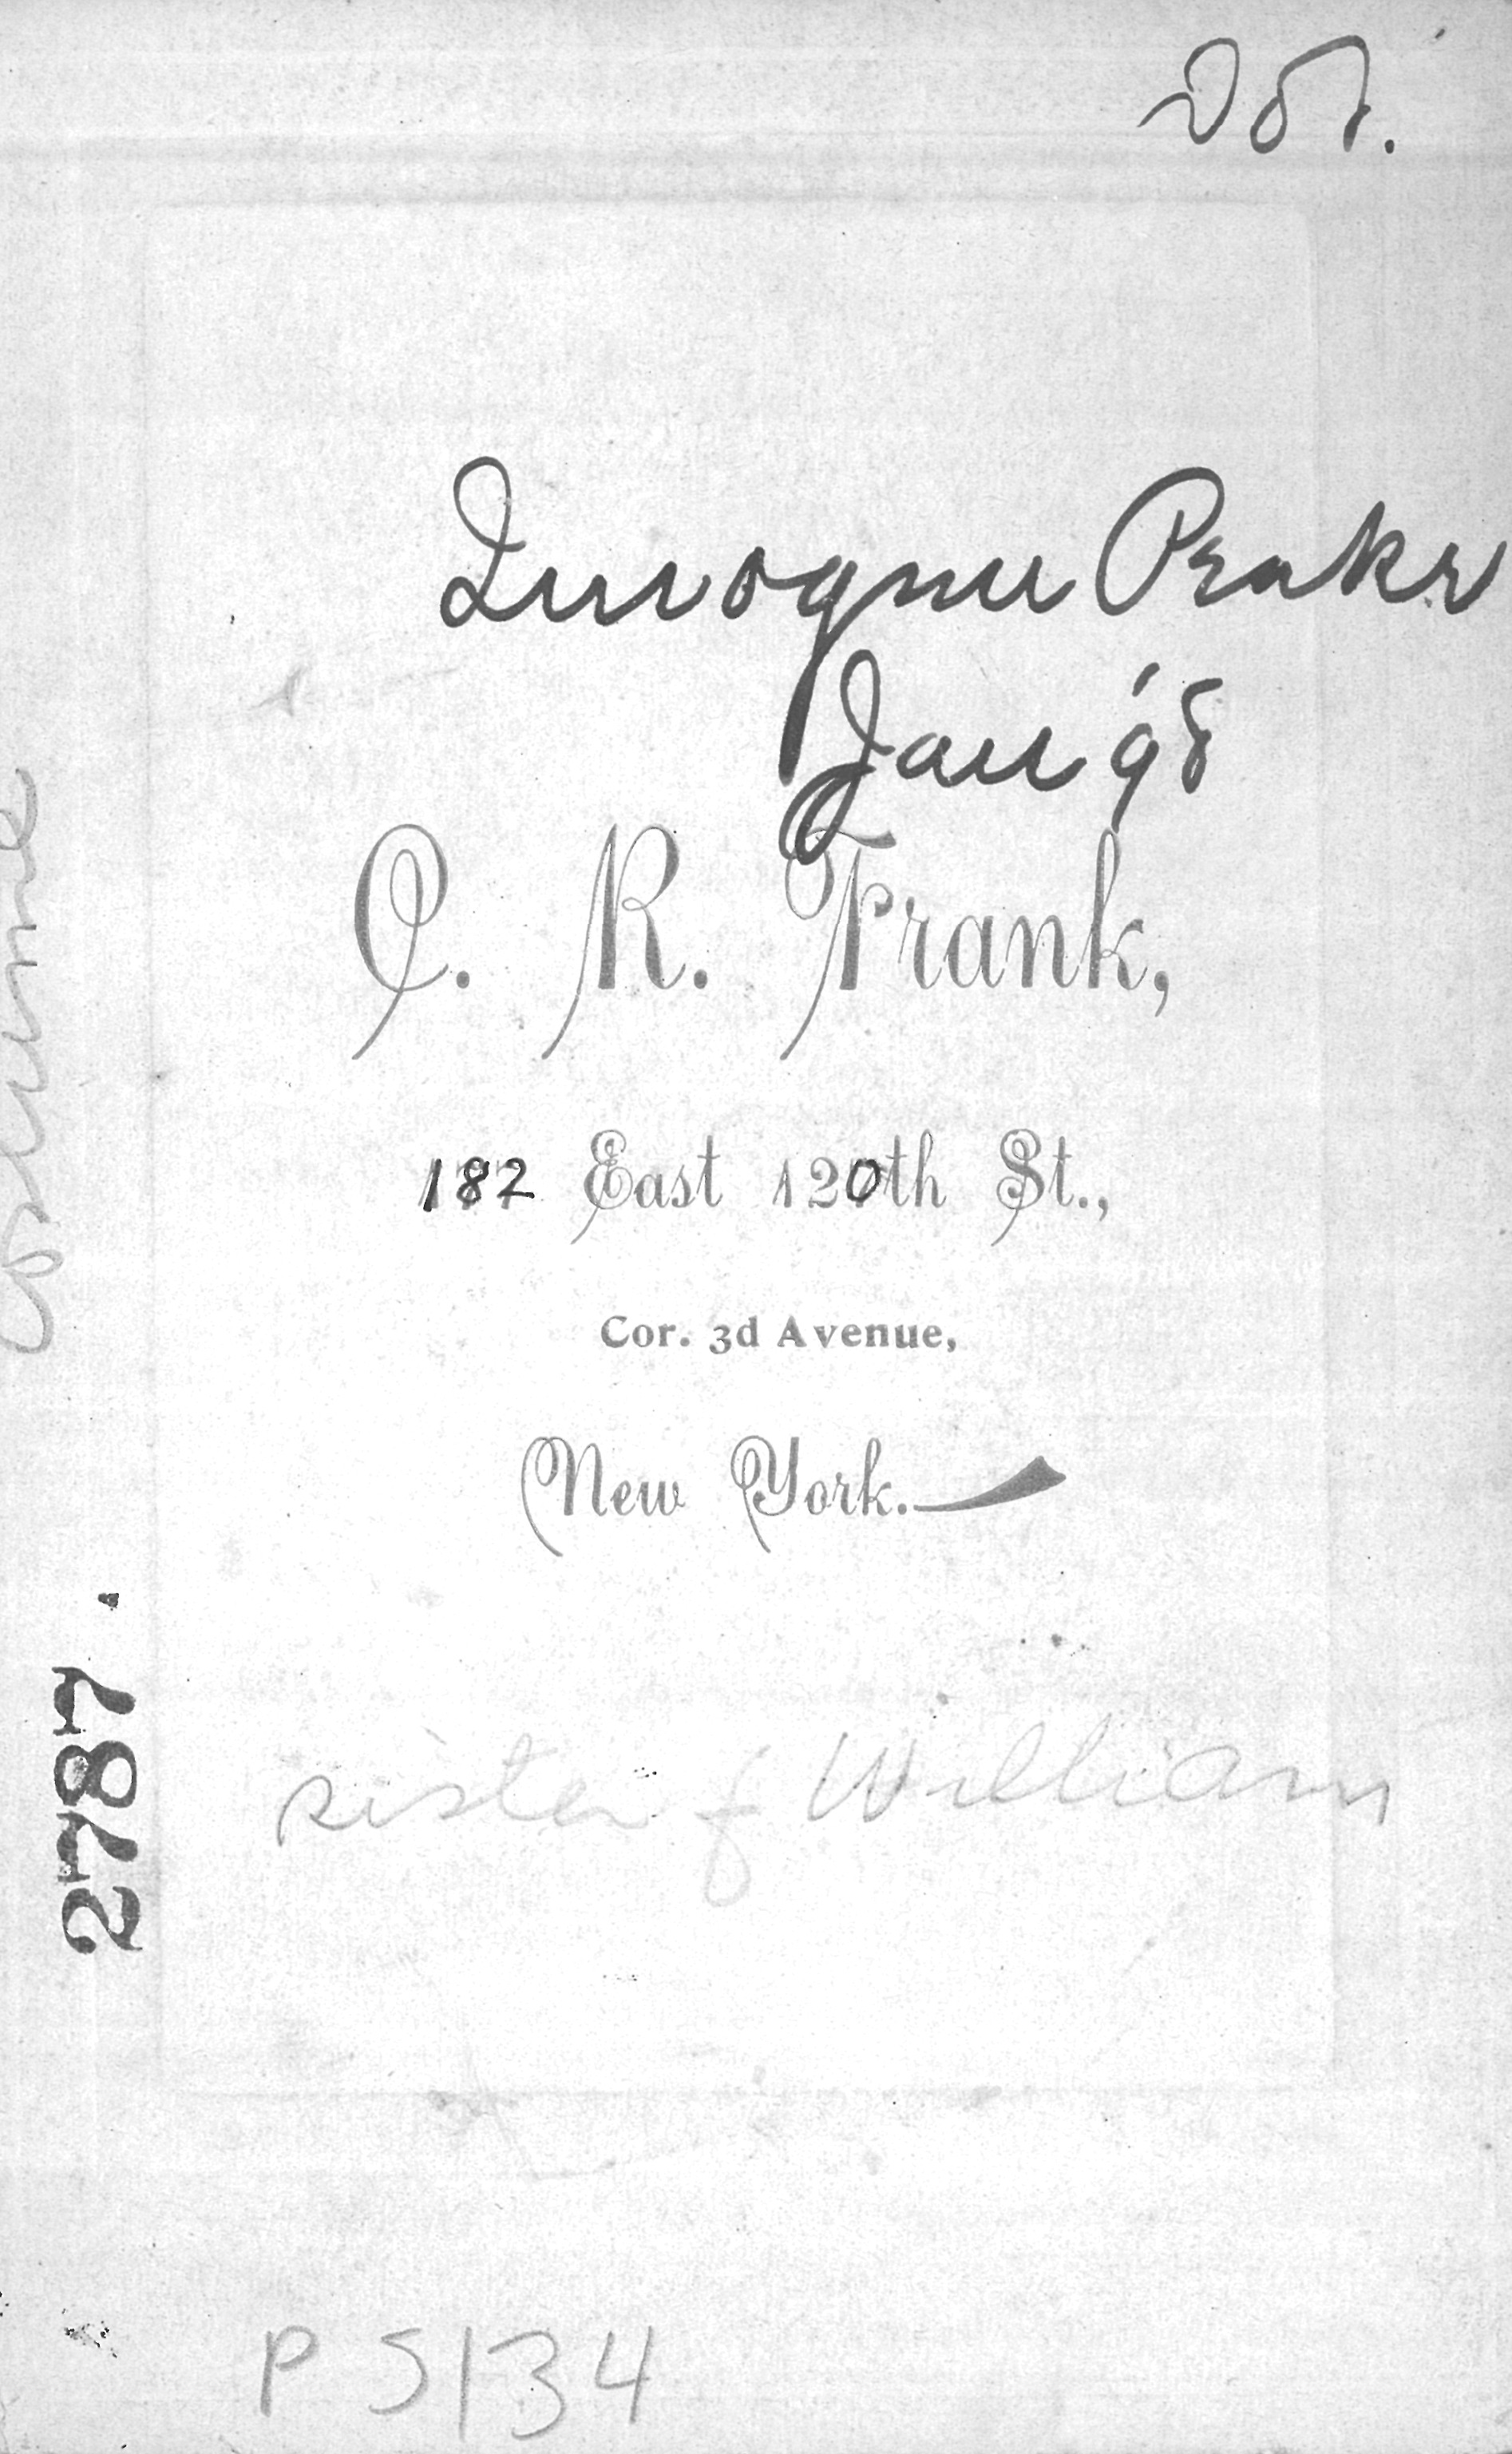 Jan '98
C. R. Frank,
182 East 120th St.,
Cor. 3d Avenue,
New York.
2787.
sister of William
P 5134